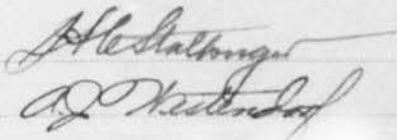 J H C Stallinger
A. J. Westendorf